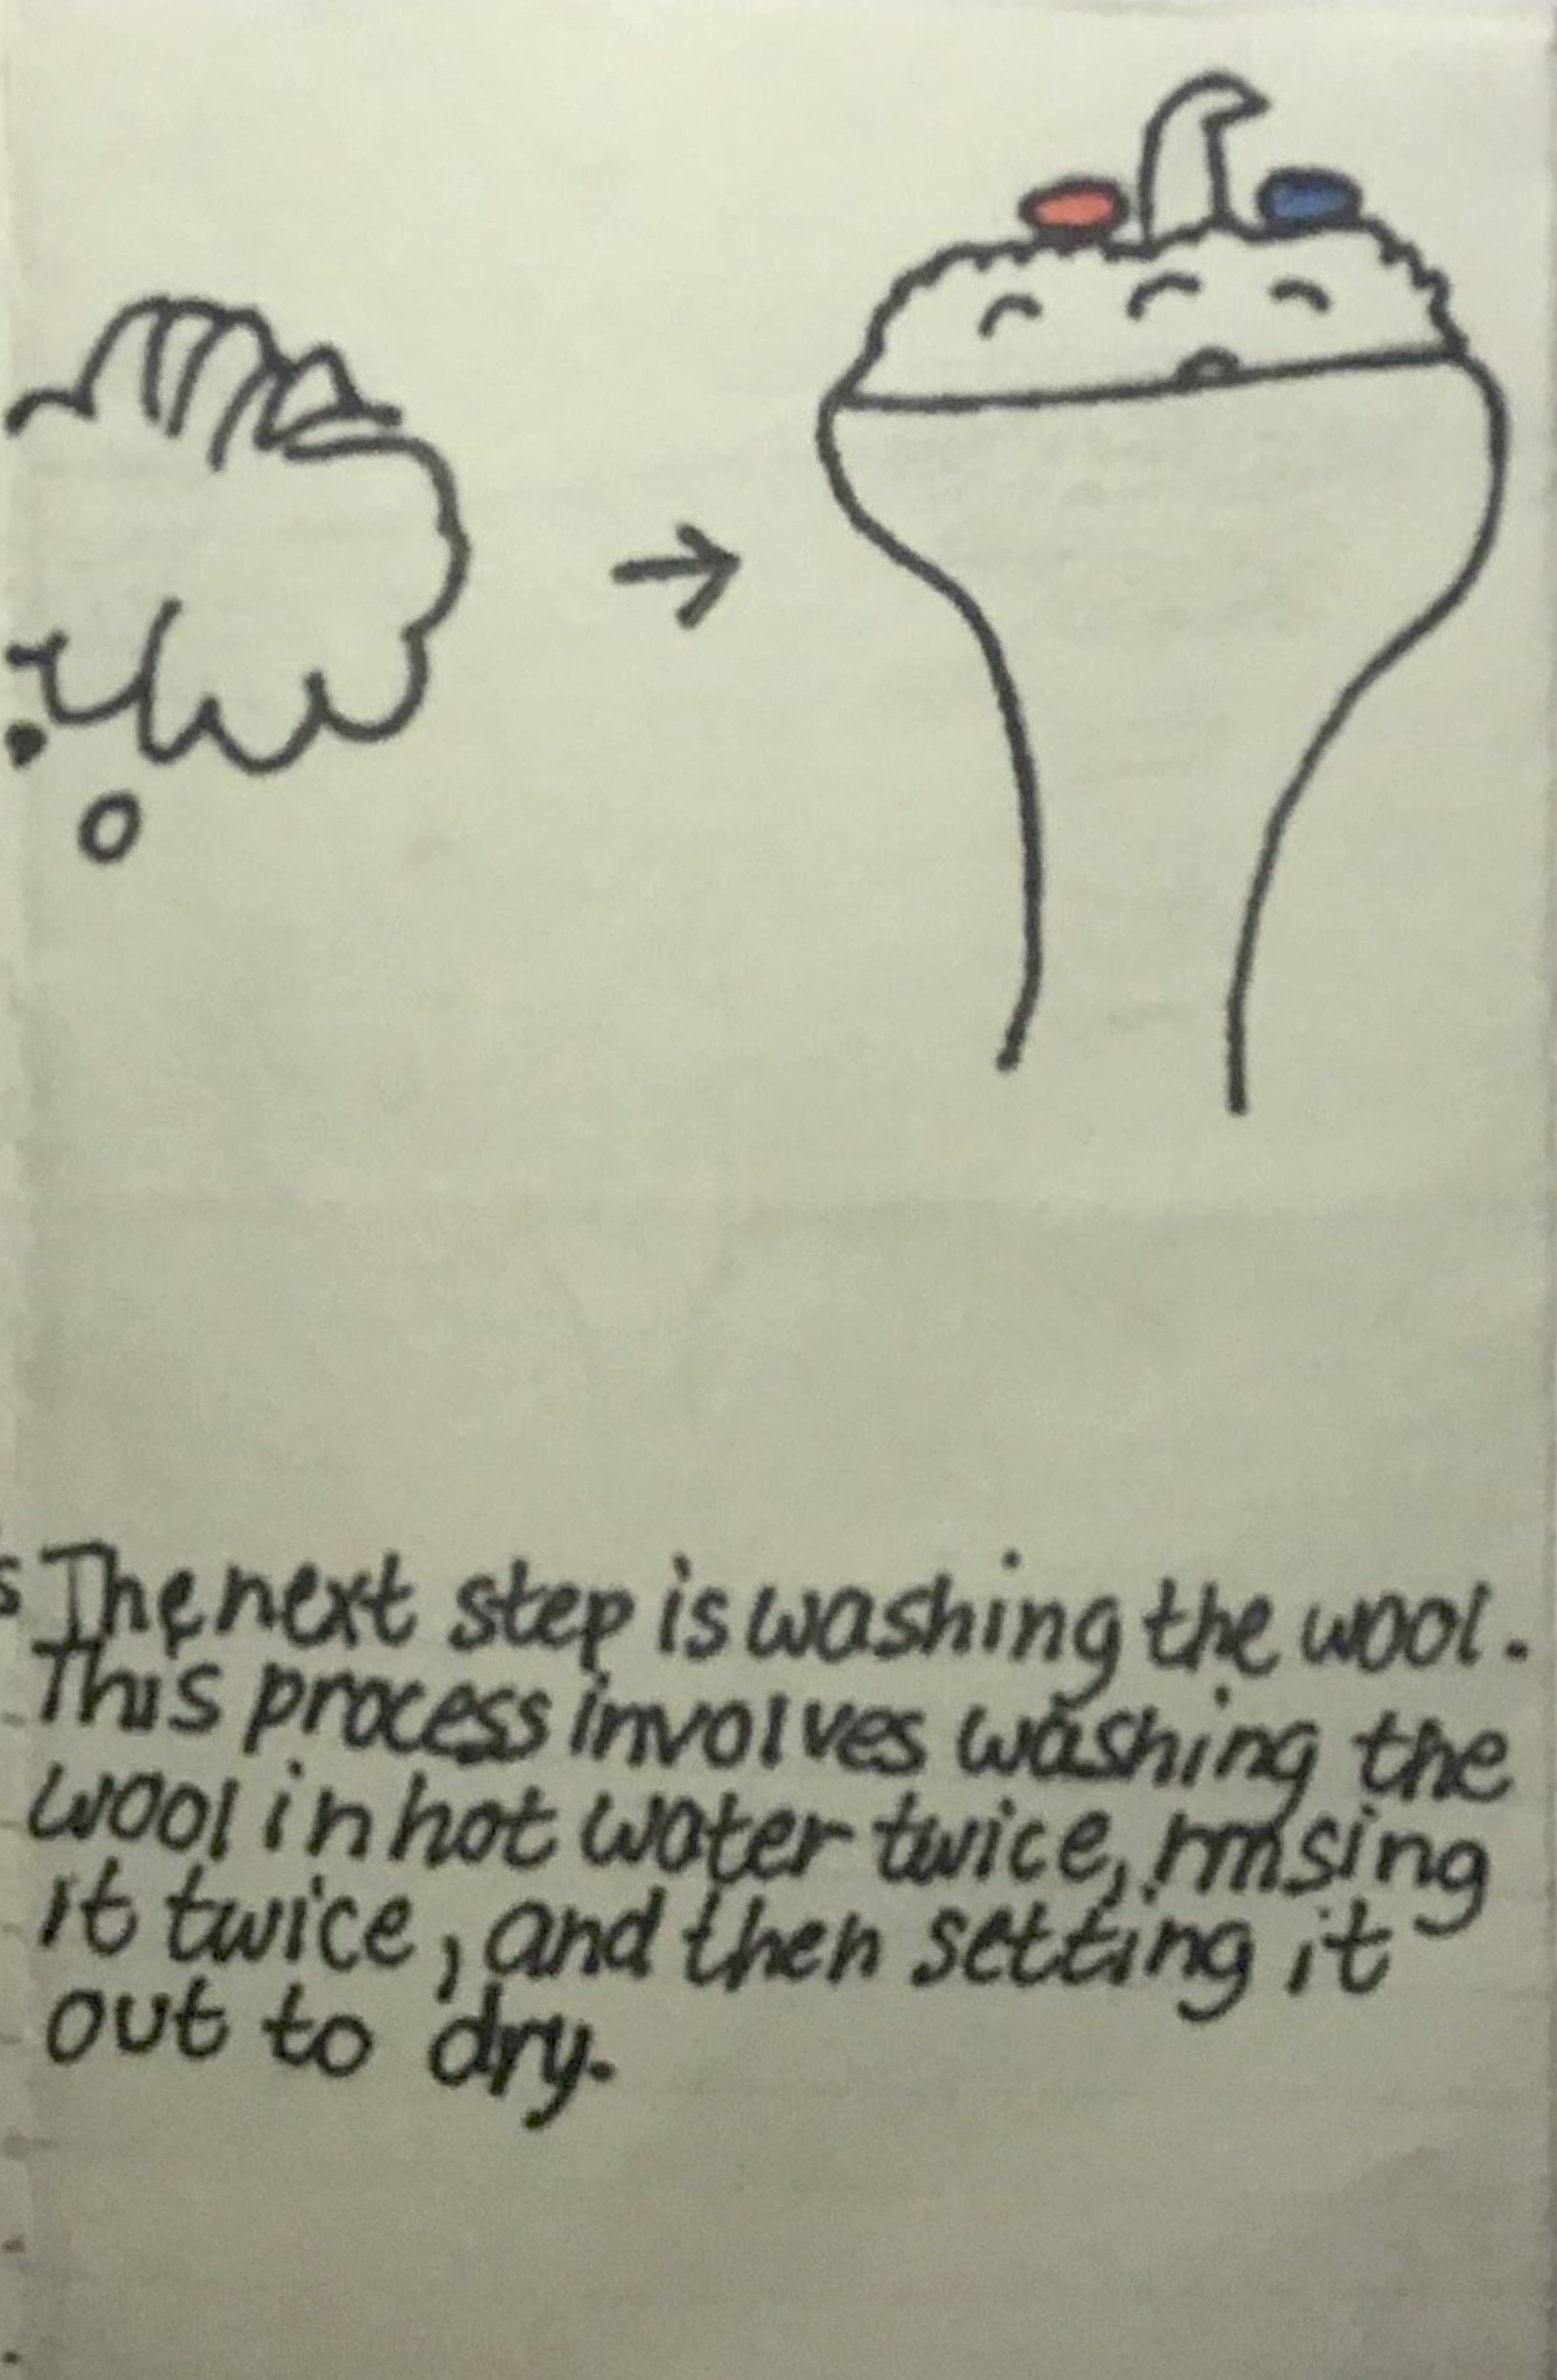 The next step is washing the wool.
This process involves washing the
wool in hot water twice, rinsing
it twice, and then setting it
out to dry.